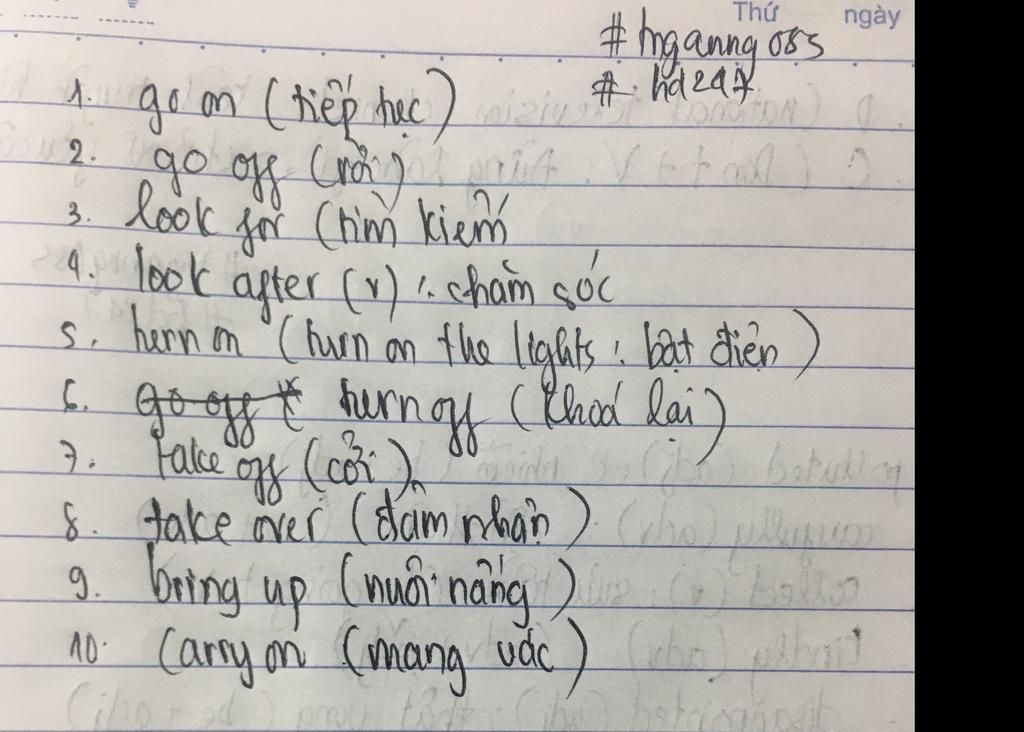 Thứ ngày
# hganng 083
# hd247
1. go on (tiếp tục)
2. go off (rời)
3. look for (tìm kiếm
4. look after (v) : chăm sóc
5. turn on (turn on the lights : bật điện)
6. go off turn off (khoá lại)
7. take off (cởi)
8. take over (đảm nhận)
9. bring up (nuôi nấng)
10. Carry on (mang vác)